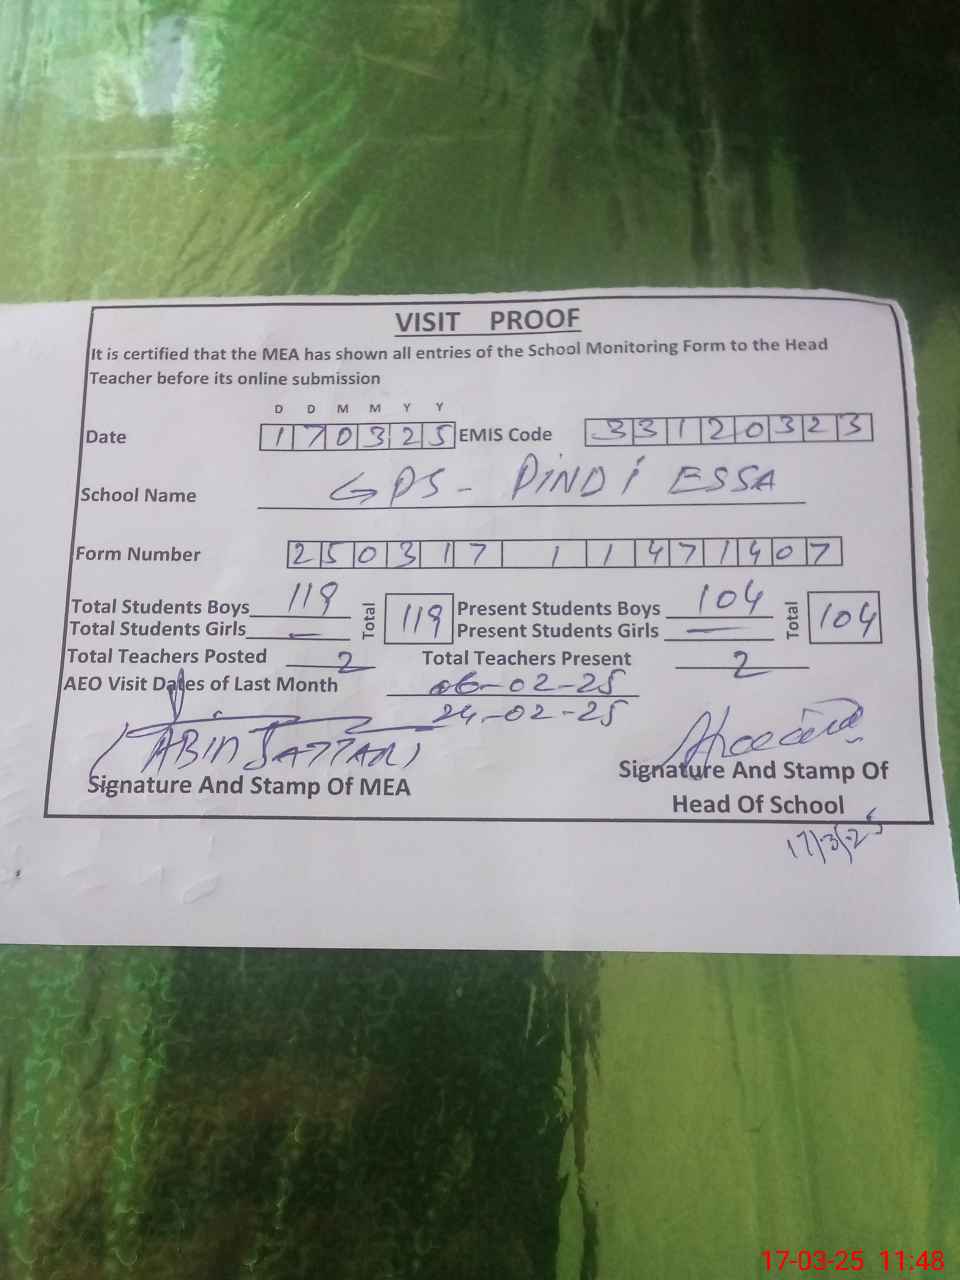 VISIT PROOF
It is certified that the MEA has shown all entries of the School Monitoring Form to the Head
Teacher before its online submission
D D M M Y Y
Date 170325 EMIS Code 33120323
School Name GPS - PINDI ESSA
Form Number 250317 11471407
Total Students Boys 119 Total 119 Present Students Boys 104 Total 104
Total Students Girls — Present Students Girls —
Total Teachers Posted 2 Total Teachers Present 2
AEO Visit Dates of Last Month 06-02-25
24-02-25
Signature And Stamp Of MEA
Signature And Stamp Of
Head Of School
17/3/25
17-03-25 11:48